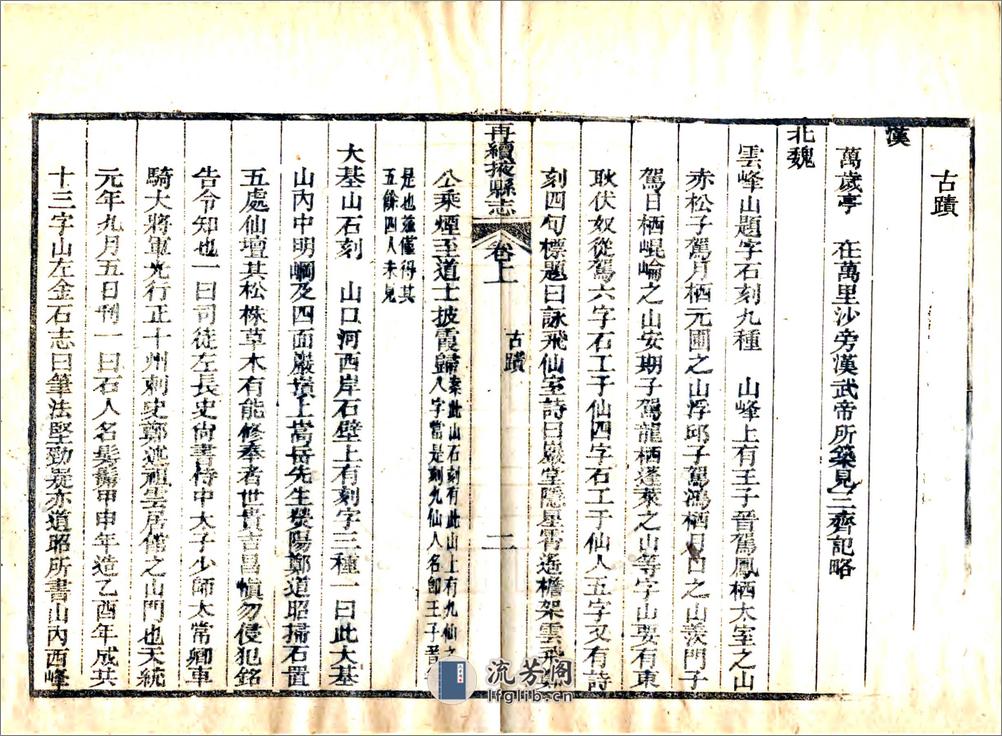 古蹟
漢
萬歲亭　在萬里沙旁漢武帝所築見三齊記略
北魏
雲峰山題字石刻九種　山峰上有王子晉駕鳳栖太室之山
赤松子駕月栖元圃之山浮邱子駕鴻栖月口之山羨門子
駕日栖崐崘之山安期子駕龍栖蓬萊之山等字山要有東
耿伏奴從駕六字石工于仙四字石工于仙人五字又有詩
刻四句標題曰詠飛仙室詩曰巖堂隱星霄遙檐架雲飛
再續掖縣志　卷上　古蹟　二
公乘煙至道士披霞歸案此山石刻有此山上有九仙之
人字當是刻九仙人名卽王子晉
是也蓋僅得其
五餘四人未見
大基山石刻　山口河西岸石壁上有刻字三種一曰此大基
山內中明岡及四面巖嶺上嵩岳先生滎陽鄭道昭掃石置
五處仙壇其松株草木有能修奉者世貴吉昌愼勿侵犯銘
告令知也一曰司徒左長史尙書侍中太子少師太常卿車
騎大將軍光行正十州刺史鄭述祖雲居舘之山門也天統
元年九月五日刊一曰石人名髡鬍甲申年造乙酉年成其
十三字山左金石志曰筆法堅勁疑亦道昭所書山內西峰
流芳閣
lfglib.cn